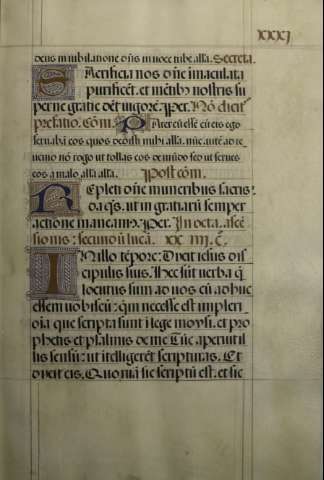 XXXI
deus in iubilatione dñs in voce tube alła. Secreta.
Sacrificia nos dñe īmaculata
purificēt. et mētib' nostris su
perne gratie dēt vigorē. p̱er. Nō dicit̄
prefatio. Cōm̄. Pater cū essē cū eis ego
seruabā eos quos dedisti michi alła. nūc autē ad te
uenio nō rogo ut tollas eos de mūdo sed ut serues
eos a malo alła alła. Post cōm̄.
Repleti dñe muneribus sacris.
da q̄s. ut in gratiarū semper
actione maneam'. p̱er. In octa. ascē
sionis: secundū lucā. xx iiii. c̄.
In illo tēpore: Dixit iesus dis
cipulis suis. Hec sūt uerba q̄
locutus sum ad uos cū adhuc
essem uobiscū: qm̄ necesse est impleri
oīa que scripta sunt ī lege moysi. et pro
phetis et psalmis de me. Tūc aperuit il
lis sensū: ut ītelligerēt scripturas. Et
dixit eis. Quoniā sic scriptū est. et sic